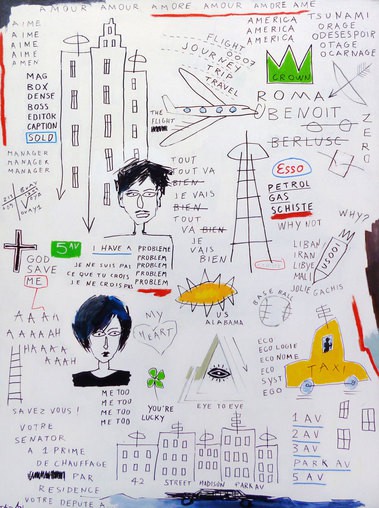 AMOUR AMOUR AMORE AMOUR AMORE AME
AIME
AIME
AIME
AIME
AMEN
MAG
BOX
DENSE
BOSS
EDITOR
CAPTION
SOLD
MANAGER
MANAGER
MANAGER
FLIGHT
JOURNEY
TRIP
TRAVEL
THE
FLIGHT
AMERICA
AMERICA
AMERICA
TSUNAMI
ORAGE
ODESESPOIR
OTAGE
OCARNAGE
CROWN
ROMA
BENOIT
BERLUSC
ZERO
TOUT
TOUT VA
BIEN
JE VAIS
BIEN
TOUT
VA BIEN
JE
VAIS
BIEN
ESSO
PETROL
GAS
SCHISTE
WHY NOT
WHY?
LIBAN
IRAN
LIBYE
MALI
JOLIE GACHIS
GOD
SAVE
ME
5 AV
I HAVE A PROBLEME
PROBLEM
JE NE SUIS PAS PROBLEM
CE QUE TU CROIS PROBLEM
JE NE CROIS PAS PROBLEM
US
ALABAMA
BASE BALL
MY
HEART
AAAA
AAAAAH
HAAAA
AAAH
ME TOO
ME TOU
ME TOO
ME TOO
YOU'RE
LUCKY
EYE TO EYE
ECO
ECOLOGIE
ECONOME
ECO
SYST
EGO
TAXI
SAVEZ VOUS !
VOTRE
SENATOR
A 1 PRIME
DE CHAUFFAGE
PAR
RESIDENCE
VOTRE DEPUTE A
42 STREET MADISON PARK AV
1 AV
2 AV
3 AV
PARK AV
5 AV